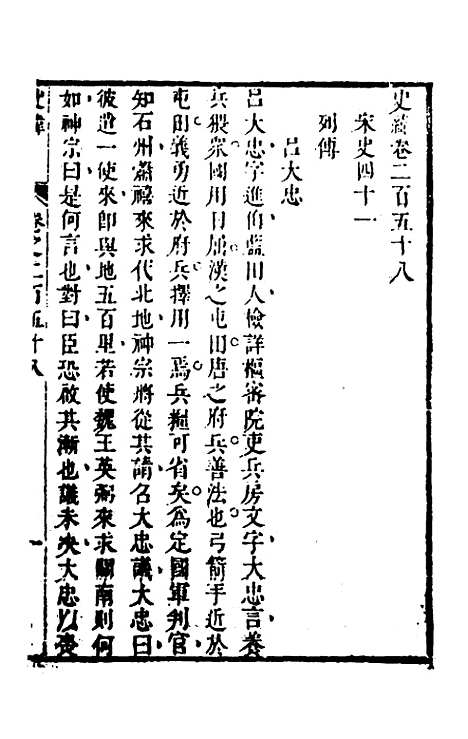 史緯卷二百五十八
宋史四十一
列傳
呂大忠
呂大忠字進伯藍田人檢詳樞密院吏兵房文字大忠言養
兵猥衆國用日屈漢之屯田唐之府兵善法也弓箭手近於
屯田義勇近於府兵擇用一焉兵糧可省矣爲定國軍判官
知石州蕭禧來求代北地神宗將從其請召大忠議大忠曰
彼遣一使來即與地五百里若使魏王英弼來求關南則何
如神宗曰是何言也對曰臣恐啟其漸也議未決大忠以喪
史緯
卷之二百五十八
一